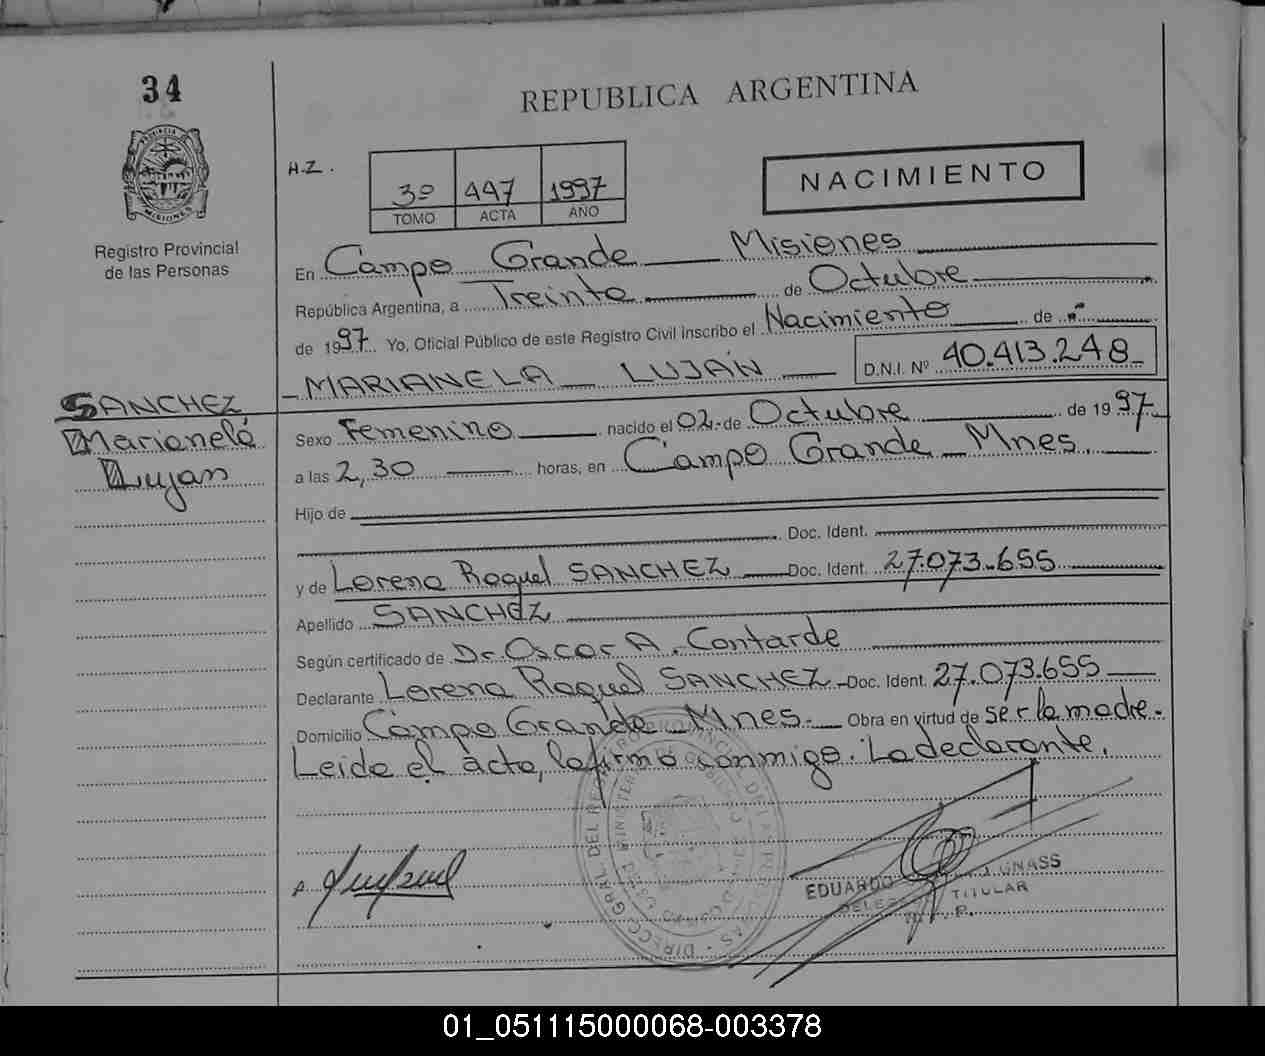 34
REPUBLICA ARGENTINA
PROVINCIA DE
MISIONES
Registro Provincial
de las Personas
H.Z.
3º 447 1997
TOMO ACTA AÑO
NACIMIENTO
En Campo Grande Misiones
República Argentina, a Treinta de Octubre
de 1997 Yo, Oficial Público de este Registro Civil inscribo el Nacimiento de
MARIANELA LUJÁN D.N.I. Nº 40.413.248
SANCHEZ
Marianela
Lujan
Sexo Femenino nacido el 02 de Octubre de 1997
a las 2,30 horas, en Campo Grande Mnes.
Hijo de
Doc. Ident.
y de Lorena Raquel SANCHEZ Doc. Ident. 27.073.655
Apellido SANCHEZ
Según certificado de Dr Oscar A. Contarde
Declarante Lorena Raquel SANCHEZ Doc. Ident. 27.073.655
Domicilio Campo Grande Mnes. Obra en virtud de ser la madre.
Leida el acta, la firma conmigo. La declarante.
EDUARDO
TITULAR